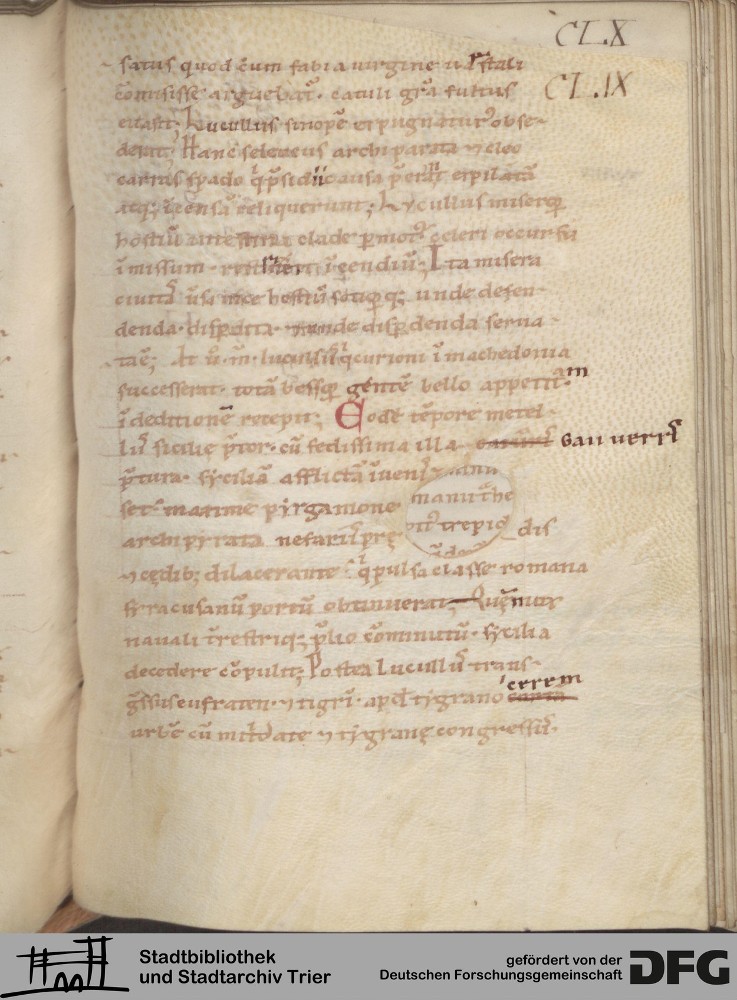 CLX
CLIX
satus quod cum fabia virgine uestali
cõmisisse arguebat̃. catuli gr̃a fultus
euasit; Lucullus sinopẽ expugnatur᷒ obse-
derat; Hanc seleucus archipirata ⁊ cleo
carius spado q̇ p̃sidii causa p̃erãt expilatã
atq; ĩcensã reliquerunt; Lucullus miserorꝝ
hostiũ intestina clade p̃mot᷒ celeri occursu
ĩmissum ĩcendiũ; Ita misera
ciuitas̃ uersa uice hostiũ sotiorꝝq; unde defen-
denda. disp̃dita. unde disp̃denda serua-
ta ẽ; At ũ. m̃. lucullus q̇ curioni ĩ machedonia
successerat. totã bessoꝝ gentẽ bello appetitam
ĩ deditionẽ recepit; Eodẽ tẽpore metel-
lus᷒ sicilie p̃tor. cũ fedissima illa gaii uerris̃
p̃tura. syciliã afflictã ĩueniss̃
set᷒ maxime pyrgamone
archipyrata nefariis̃ p̃rę dis
⁊ cędib; dilacerante. q̇ pulsa classe romana
syracusanũ portũ obtinuerat, Quẽ mox
nauali t̃restriq; p̃lio cõminutũ. sycilia
decedere cõpulit; Postea Lucull᷒ trans-
gr̃ssus eufraten ⁊ tigrĩ. apd̃ tygranocerrem
urbẽ cũ mitridate ⁊ tygranę congressus᷒.
Stadtbibliothek
und Stadtarchiv Trier
gefördert von der
Deutschen Forschungsgemeinschaft
DFG